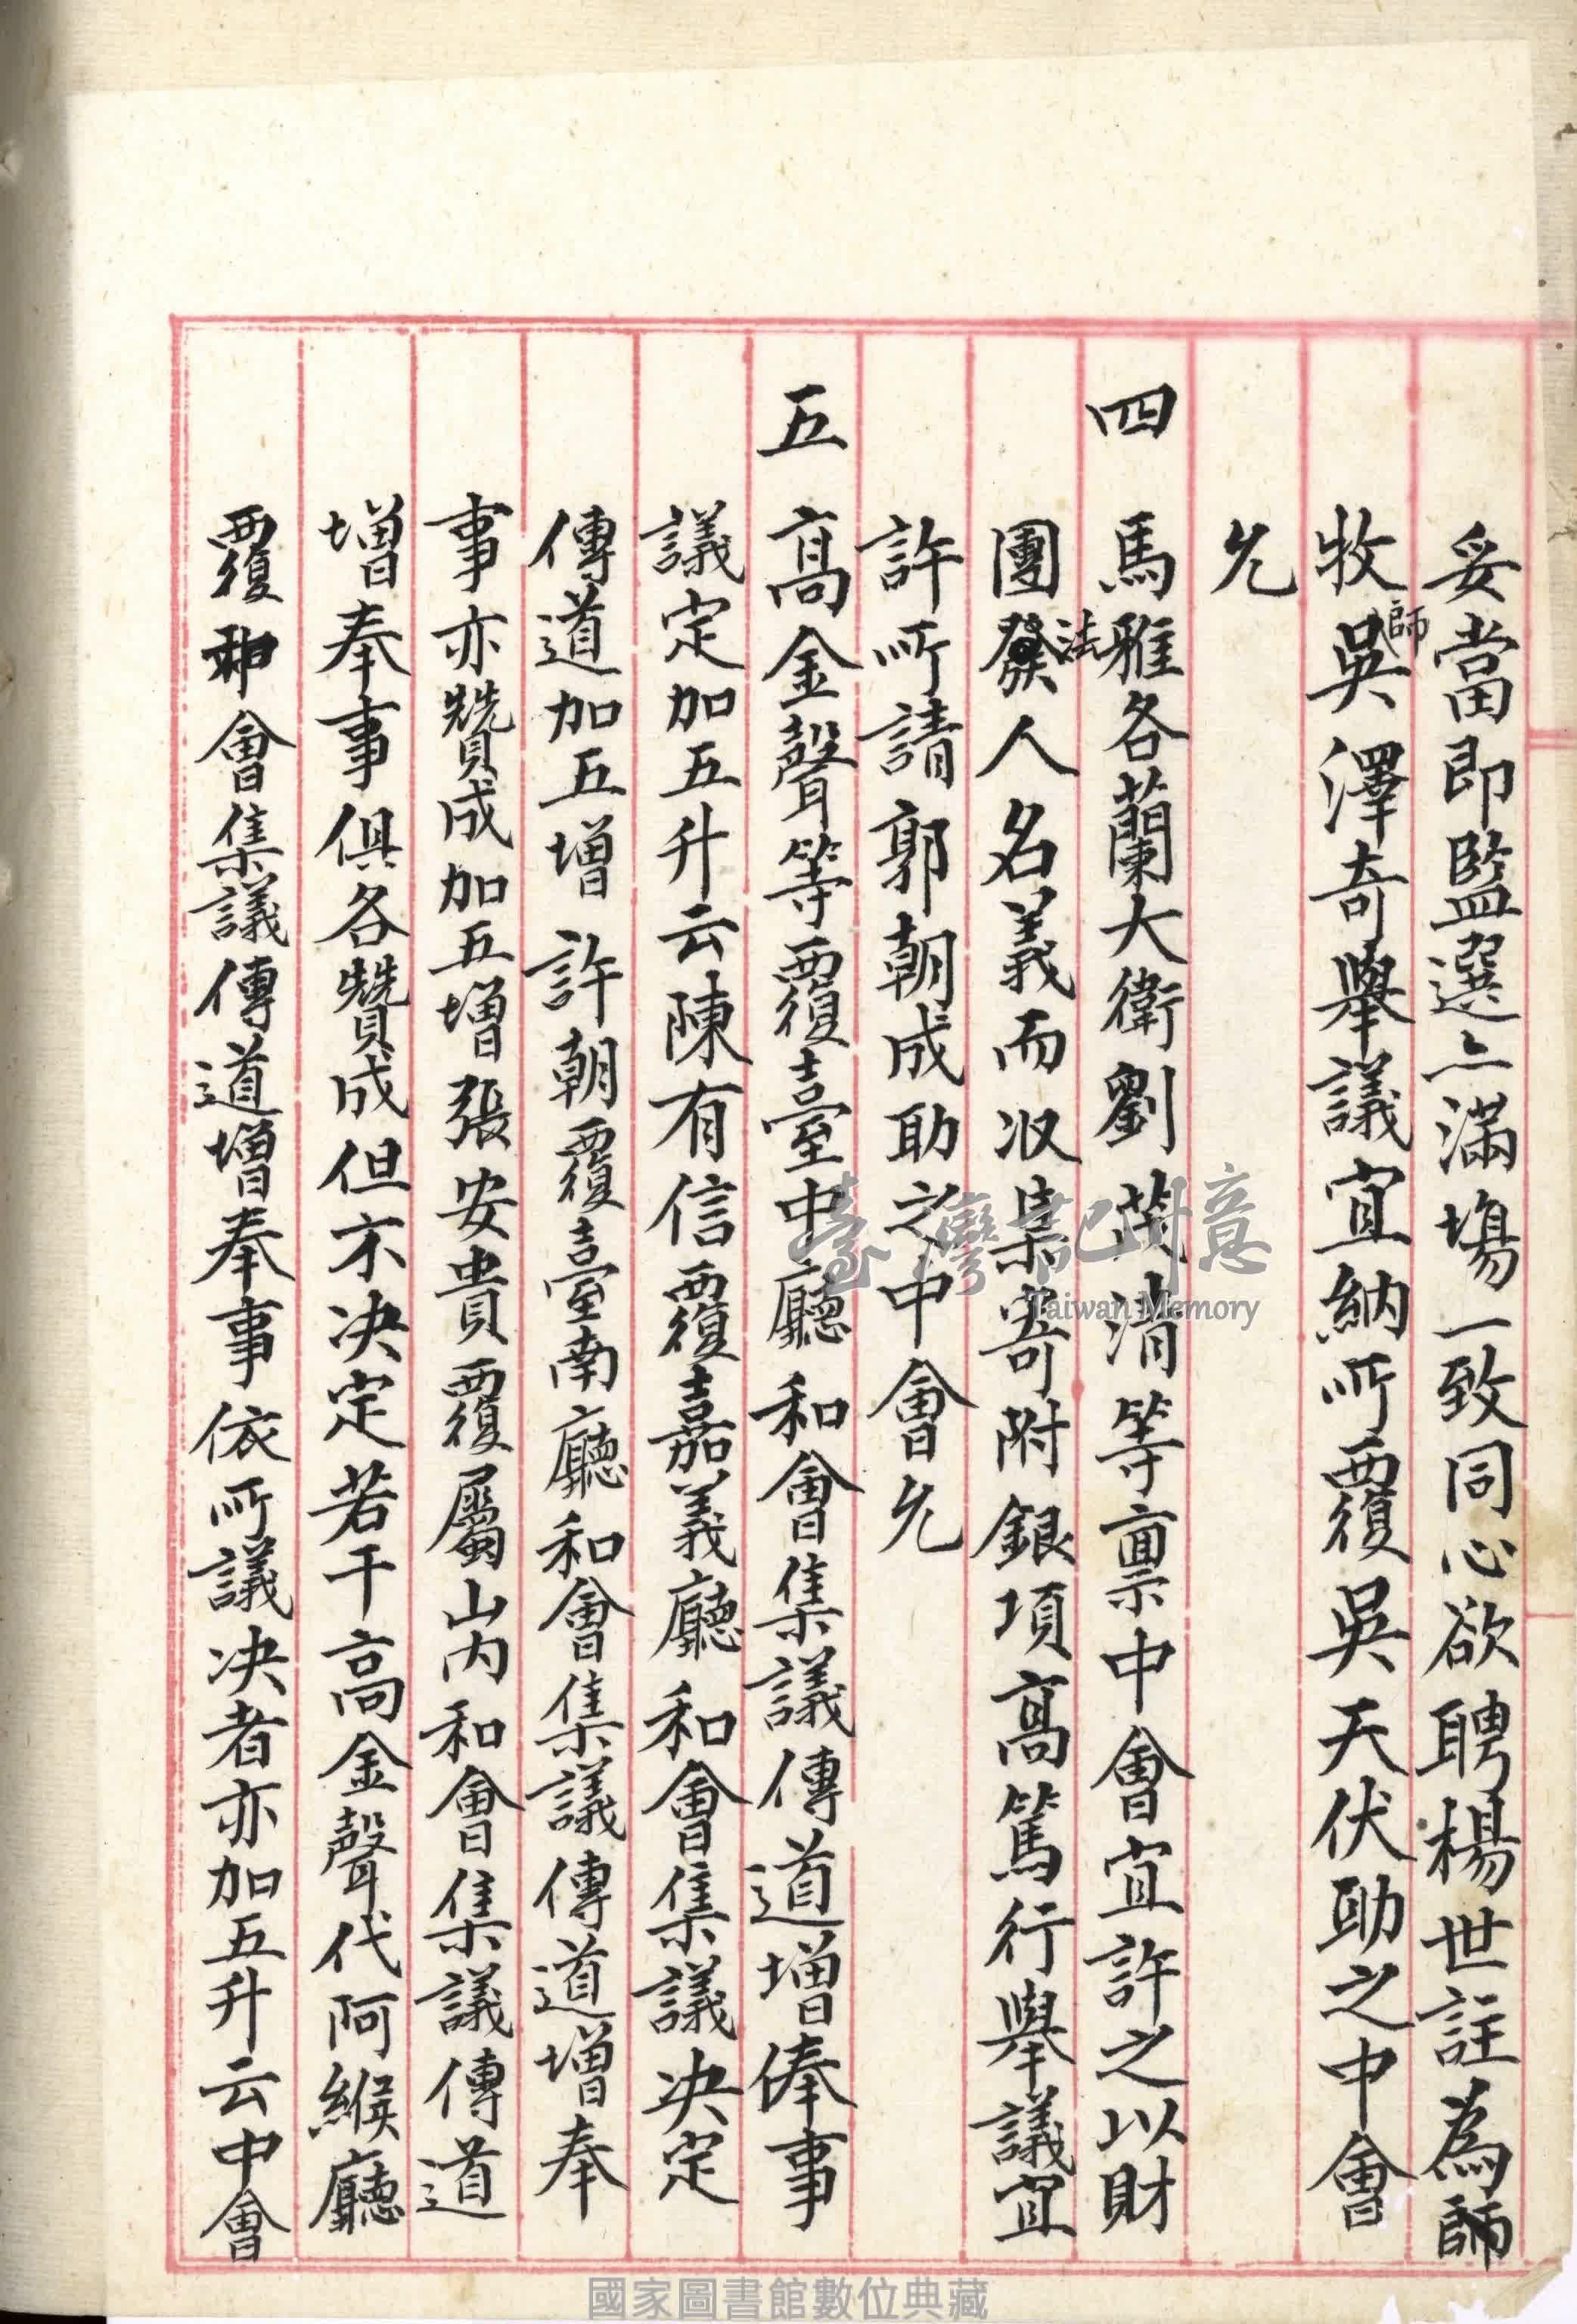 妥當即監選亦滿場一致同心欲聘楊世註為師
牧師吳澤奇舉議宜納所覆吳天伏助之中會
允
四 馬雅各蘭大衛劉茂清等禀中會宜許之以財
團法人名義而收集寄附銀項高篤行舉議宜
許所請郭朝成助之中會允
五 高金聲等覆臺中廳和會集議傳道增俸事
議定加五升云陳有信覆嘉義廳和會集議决定
傳道加五增許朝覆臺南廳和會集議傳道增奉
事亦贊成加五增張安貴覆屬山内和會集議傳道
增奉事俱各贊成但不决定若干高金聲代阿緱廳
覆和會集議傳道增奉事依所議决者亦加五升云中會
臺灣記憶
Taiwan Memory
國家圖書館數位典藏